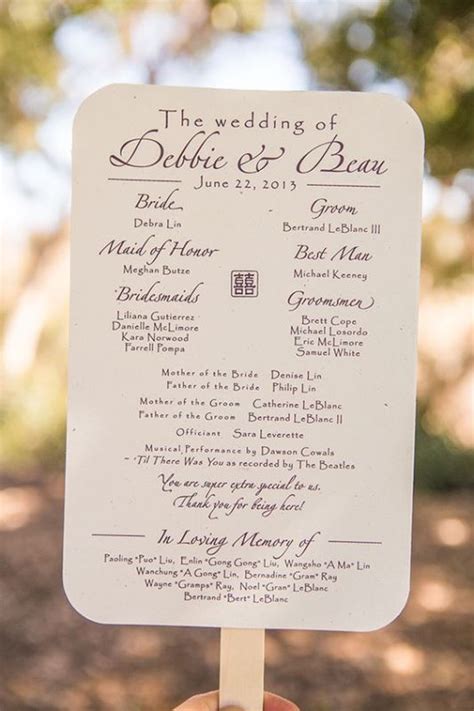 The wedding of
Debbie & Beau
June 22, 2013
Bride
Debra Lin
Groom
Bertrand LeBlanc III
Maid of Honor
Meghan Butze
Best Man
Michael Keeney
囍
Bridesmaids
Liliana Gutierrez
Danielle McLimore
Kara Norwood
Farrell Pompa
Groomsmen
Brett Cope
Michael Losordo
Eric McLimore
Samuel White
Mother of the Bride Denise Lin
Father of the Bride Philip Lin
Mother of the Groom Catherine LeBlanc
Father of the Groom Bertrand LeBlanc II
Officiant Sara Leverette
Musical Performance by Dawson Cowals
~ 'Til There Was You as recorded by The Beatles
You are super extra special to us.
Thank you for being here!
In Loving Memory of
Paoling "Puo" Liu, Enlin "Gong Gong" Liu, Wangsho "A Ma" Lin
Wanchung "A Gong" Lin, Bernadine "Gram" Ray
Wayne "Gramps" Ray, Noel "Gran" LeBlanc
Bertrand "Bert" LeBlanc